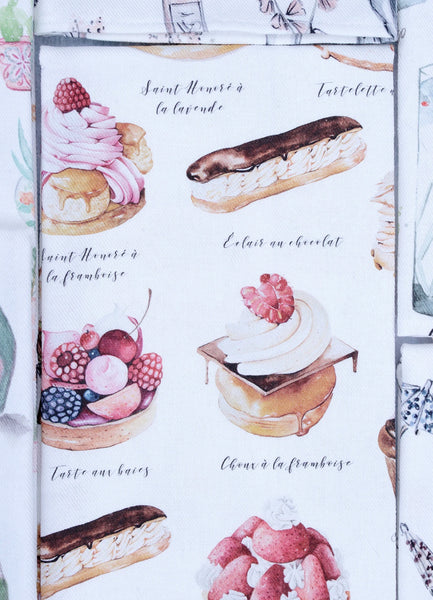 Saint Honoré à
la lavende
Tartelette
Éclair au chocolat
Saint Honoré à
la framboise
Tarte aux baies
Choux à la framboise